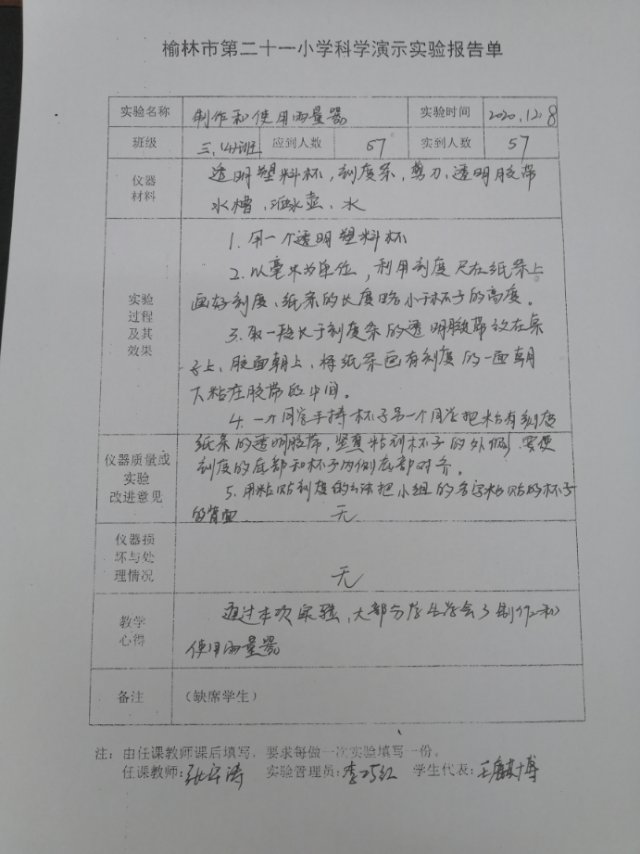 榆林市第二十一小学科学演示实验报告单
实验名称 制作和使用雨量器 实验时间 2020.12.8
班级 三.(4)班 应到人数 57 实到人数 57
仪器材料 透明塑料杯,刻度条,剪刀,透明胶带
水槽、洒水壶、水
实验过程及其效果
1.用一个透明塑料杯
2.以毫米为单位,利用刻度尺在纸条上
画好刻度、纸条的长度略小于杯子的高度。
3.取一段长于刻度条的透明胶带放在桌
子上,胶面朝上,将纸条画有刻度的一面朝
下粘在胶带的中间。
4.一个同学手持杯子另一个同学把粘有刻度
纸条的透明胶带,竖直粘到杯子的外侧.要使
刻度的底部和杯子内侧底部对齐。
5.用粘贴刻度的方法把小组的名字粘贴的杯子
的背面
仪器质量或实验改进意见 无
仪器损坏与处理情况 无
教学心得 通过本次实验,大部分学生学会了制作和
使用雨量器
备注 (缺席学生)
注:由任课教师课后填写,要求每做一次实验填写一份。
任课教师: 实验管理员:李巧红 学生代表: